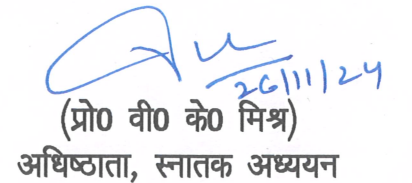 26/11/24
(प्रो0 वी0 के0 मिश्र)
अधिष्ठाता, स्नातक अध्ययन